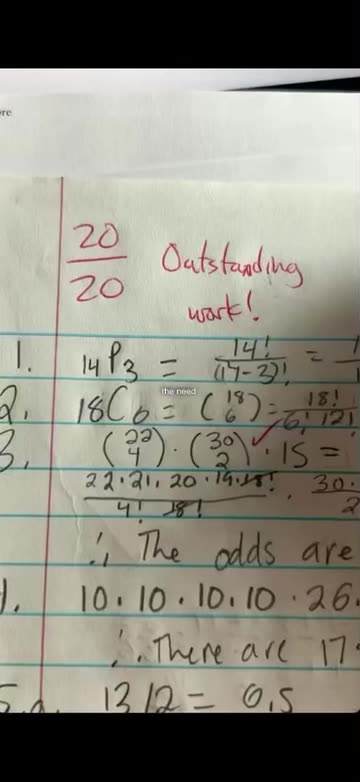 re
20/20 Outstanding work!
1. 14P3 = 14!/(14-3)! =
the need
2. 18C6 = (18 6) = 18!/6! 12!
3. (22 4) · (30 2) · 15 =
22·21·20·19·18!/4! 18! · 30·
∴ The odds are
10·10·10·10·26·
∴ There are 17
5.a. 13/2 = 0.5